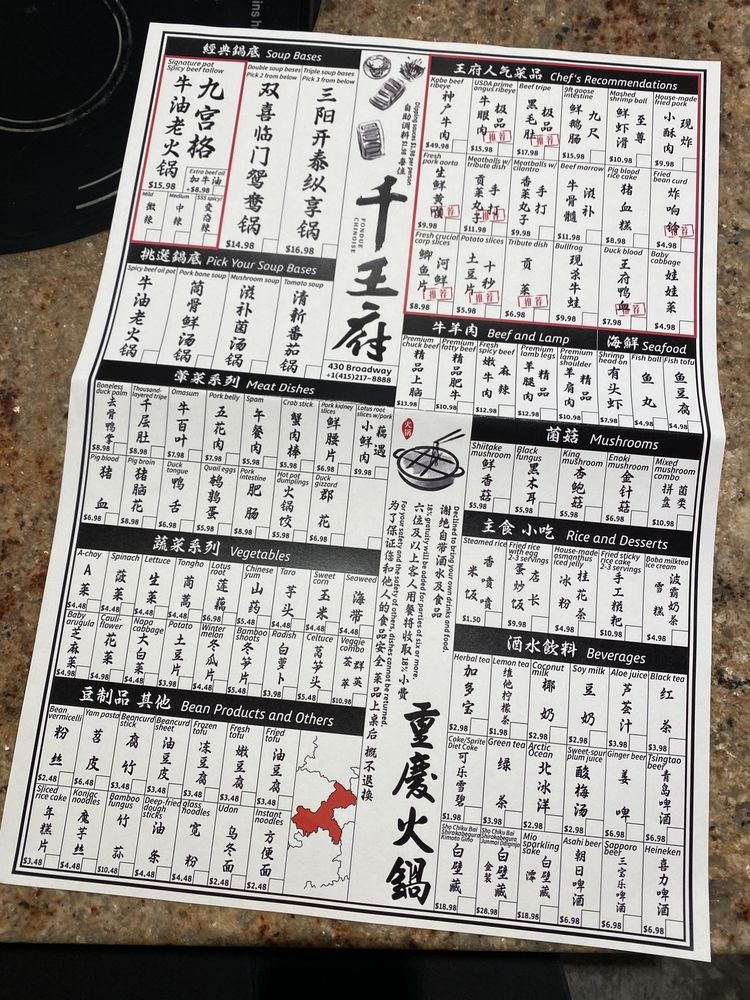 經典鍋底 Soup Bases
Signature pot
Spicy beef tallow
九宫格
牛油老火锅
$15.98
Extra beef oil
加牛油
+$8.98
Mild
微辣
Medium
中辣
SSS spicy!
变态辣
Double soup bases
Pick 2 from below
双喜临门鸳鸯锅
$14.98
Triple soup bases
Pick 3 from below
三阳开泰纵享锅
$16.98
挑選鍋底 Pick Your Soup Bases
Spicy beef oil pot
牛油老火锅
Pork bone soup
筒骨鲜汤锅
Mushroom soup
滋补菌汤锅
Tomato soup
清新番茄锅
自助調料 $1.98 每位
Dipping sauces $1.98 per person
千王府
FONDUE CHINOISE
430 Broadway
+1(415)217-8888
王府人气菜品 Chef's Recommendations
Kobe beef ribeye
神户牛肉
$49.98
USDA prime angus ribeye
极品牛眼肉
推荐
$15.98
Beef tripe
极品黑毛肚
推荐
$17.98
9ft goose intestine
九尺鲜鹅肠
$15.98
Mashed shrimp ball
至尊鲜虾滑
$10.98
House-made fried pork
现炸小酥肉
$9.98
Fresh pork aorta
生鲜黄喉
推荐
$9.98
Meatballs w/ tribute dish
手打贡菜丸子
推荐
$11.98
Meatballs w/ cilantro
手打香菜丸子
$9.98
Beef marrow
滋补牛骨髓
$11.98
Pig blood rice cake
猪血糕
$8.98
Fried bean curd
炸响铃
推荐
$4.98
Fresh crucial carp slices
河鲜鲫鱼片
推荐
$8.98
Potato slices
十秒土豆片
推荐
$5.98
Tribute dish
贡菜
推荐
$6.98
Bullfrog
现杀牛蛙
$9.98
Duck blood
王府鸭血
推荐
$7.98
Baby cabbage
娃娃菜
$4.98
牛羊肉 Beef and Lamp
Premium chuck beef
精品上脑
$13.98
Premium fatty beef
精品肥牛
$10.98
Fresh spicy beef
麻辣嫩牛肉
$12.98
Premium lamb legs
精品羊腿肉
$12.98
Premium lamp shoulder
精品羊肩肉
$10.98
海鮮 Seafood
Shrimp head on
有头虾
$7.98
Fish ball
鱼丸
$4.98
Fish tofu
鱼豆腐
$4.98
葷菜系列 Meat Dishes
Boneless duck palm
去骨鸭掌
$8.98
Thousand-layered tripe
千层肚
$8.98
Omasum
牛百叶
$7.98
Pork belly
五花肉
$7.98
Spam
午餐肉
$5.98
Crab stick
蟹肉棒
$5.98
Pork kidney slices
鲜腰片
$6.98
Lotus root slices w/pork
藕遇小鲜肉
$9.98
Pig blood
猪血
$6.98
Pig brain
猪脑花
$8.98
Duck tongue
鸭舌
$6.98
Quail eggs
鹌鹑蛋
$5.98
Pork intestine
肥肠
$8.98
Hot pot dumplings
火锅饺
$5.98
Duck gizzard
郡花
$6.98
火锅
菌菇 Mushrooms
Shiitake mushroom
鲜香菇
$5.98
Black fungus
黑木耳
$5.98
King mushroom
杏鲍菇
$5.98
Enoki mushroom
金针菇
$6.98
Mixed mushroom combo
菌类拼盘
$10.98
蔬菜系列 Vegetables
A-choy
A菜
$4.48
Spinach
菠菜
$4.48
Lettuce
生菜
$4.48
Tongho
茼蒿
$4.48
Lotus root
莲藕
$6.98
Chinese yum
山药
$5.48
Taro
芋头
$4.48
Sweet corn
玉米
$4.48
Seaweed
海带
$4.48
Baby arugula
芝麻菜
$4.98
Cauli-flower
花菜
$4.48
Napa cabbage
大白菜
$4.48
Potato
土豆片
$4.48
Winter melon
冬瓜片
$4.48
Bamboo shoots
冬笋片
$5.98
Radish
白萝卜
$3.98
Celtuce
莴笋头
$5.48
Veggie combo
群英荟萃
$10.98
谢绝自带酒水及食品
Declined to bring your own drinks and food.
六位及以上客人用餐将收取18%小费
18% gratuity will be added for parties of six or more.
为了保证您和他人的食品安全 菜品上桌后 概不退换
For your safety and the safety of others, dishes cannot be returned.
主食 小吃 Rice and Desserts
Steamed rice
香喷喷米饭
$1.50
Fried rice with egg 2-3 servings
店长蛋炒饭
$9.98
House-made osmanthus iced jelly
桂花冰粉
$4.98
Fried sticky rice cake 2-3 servings
手工糍粑
$10.98
Boba milktea ice cream
波霸奶茶雪糕
$4.98
酒水飲料 Beverages
Herbal tea
加多宝
$2.98
Lemon tea
维他柠檬茶
$1.98
Coconut milk
椰奶
$2.98
Soy milk
豆奶
$2.98
Aloe juice
芦荟汁
$3.98
Black tea
红茶
$3.98
Coke/Sprite Diet Coke
可乐雪碧
$1.98
Green tea
绿茶
$3.98
Arctic Ocean
北冰洋
$2.98
Sweet-sour plum juice
酸梅汤
$2.98
Ginger beer
姜啤
$6.98
Tsingtao beer
青岛啤酒
$6.98
Sho Chiku Bai Shirakabegura Kimoto Ginjo
白壁藏
$18.98
Sho Chiku Bai Shirakabegura Junmai Daiginjo
白壁藏金装
$28.98
Mio sparkling sake
白壁藏澪
$18.98
Asahi beer
朝日啤酒
$6.98
Sapporo beer
三宝乐啤酒
$6.98
Heineken
喜力啤酒
$6.98
豆制品 其他 Bean Products and Others
Bean vermicelli
粉丝
$2.48
Yam pasta
苕皮
$6.48
Beancurd stick
腐竹
$2.48
Beancurd sheet
油豆皮
$2.48
Frozen tofu
冻豆腐
$3.48
Fresh tofu
嫩豆腐
$3.48
Fried tofu
油豆腐
$3.48
Sliced rice cake
年糕片
$3.48
Konjac noodles
魔芋丝
$4.48
Bamboo fungus
竹荪
$10.48
Deep-fried dough sticks
油条
$4.48
glass noodles
宽粉
$4.48
Udon
乌冬面
$2.48
Instant noodles
方便面
$2.48
重慶火鍋